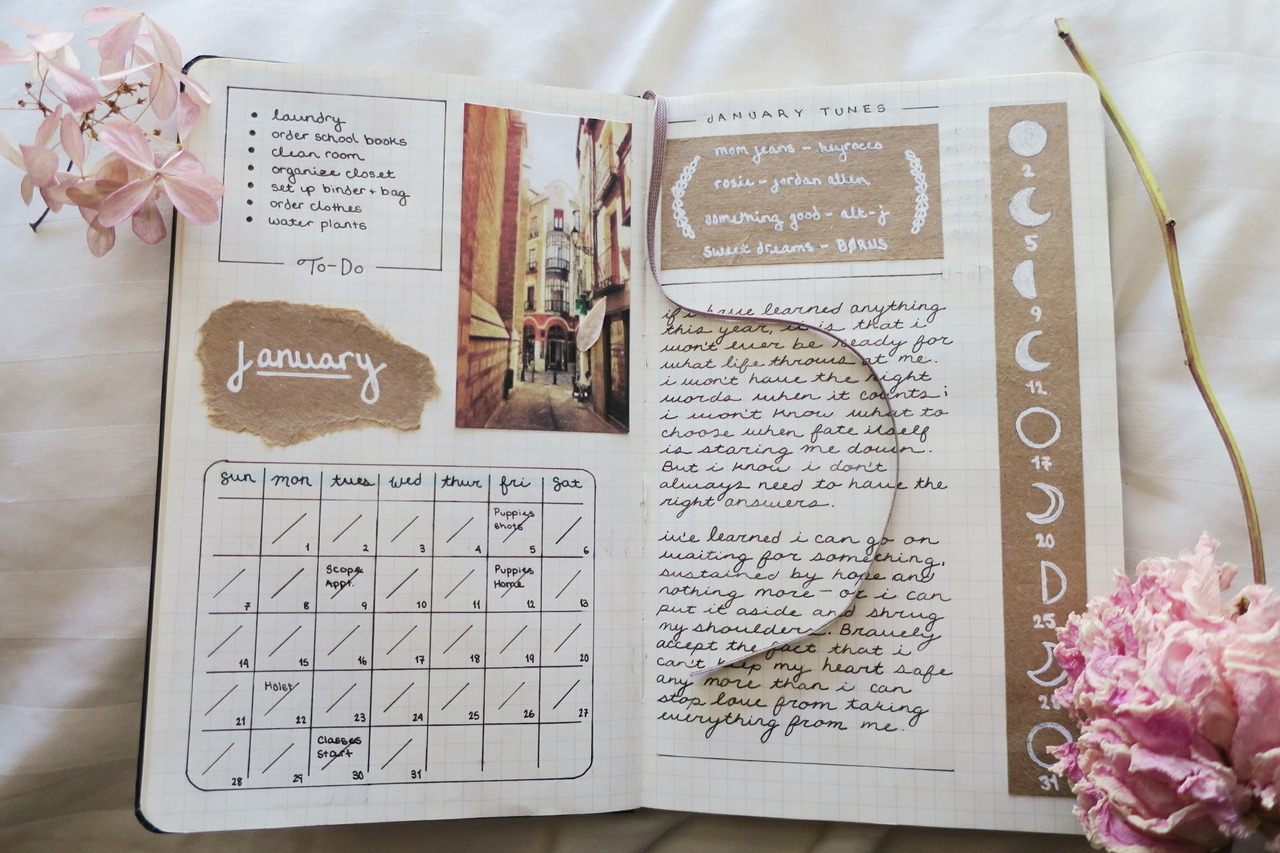 laundry
order school books
clean room
organize closet
set up binder + bag
order clothes
water plants
To-Do
January
sun mon tues wed thur fri sat
Puppies
Shots
1 2 3 4 5 6
Scope
Appt.
Puppies
Home
7 8 9 10 11 12 13
14 15 16 17 18 19 20
21 22 23 24 25 26 27
Classes
Start
28 29 30 31
JANUARY TUNES
mom jeans - heyrocco
rosie - jordan allen
something good - alt-j
sweet dreams - BØRNS
if i have learned anything
this year, it is that i
won't ever be ready for
what life throws at me.
i won't have the right
words when it counts;
i won't know what to
choose when fate itself
is staring me down.
But i know i don't
always need to have the
right answers.
i've learned i can go on
waiting for something,
sustained by hope and
nothing more - or i can
put it aside and shrug
my shoulders. Bravely
accept the fact that i
can't keep my heart safe
any more than i can
stop love from taking
everything from me.
2
5
9
12
17
20
25
31